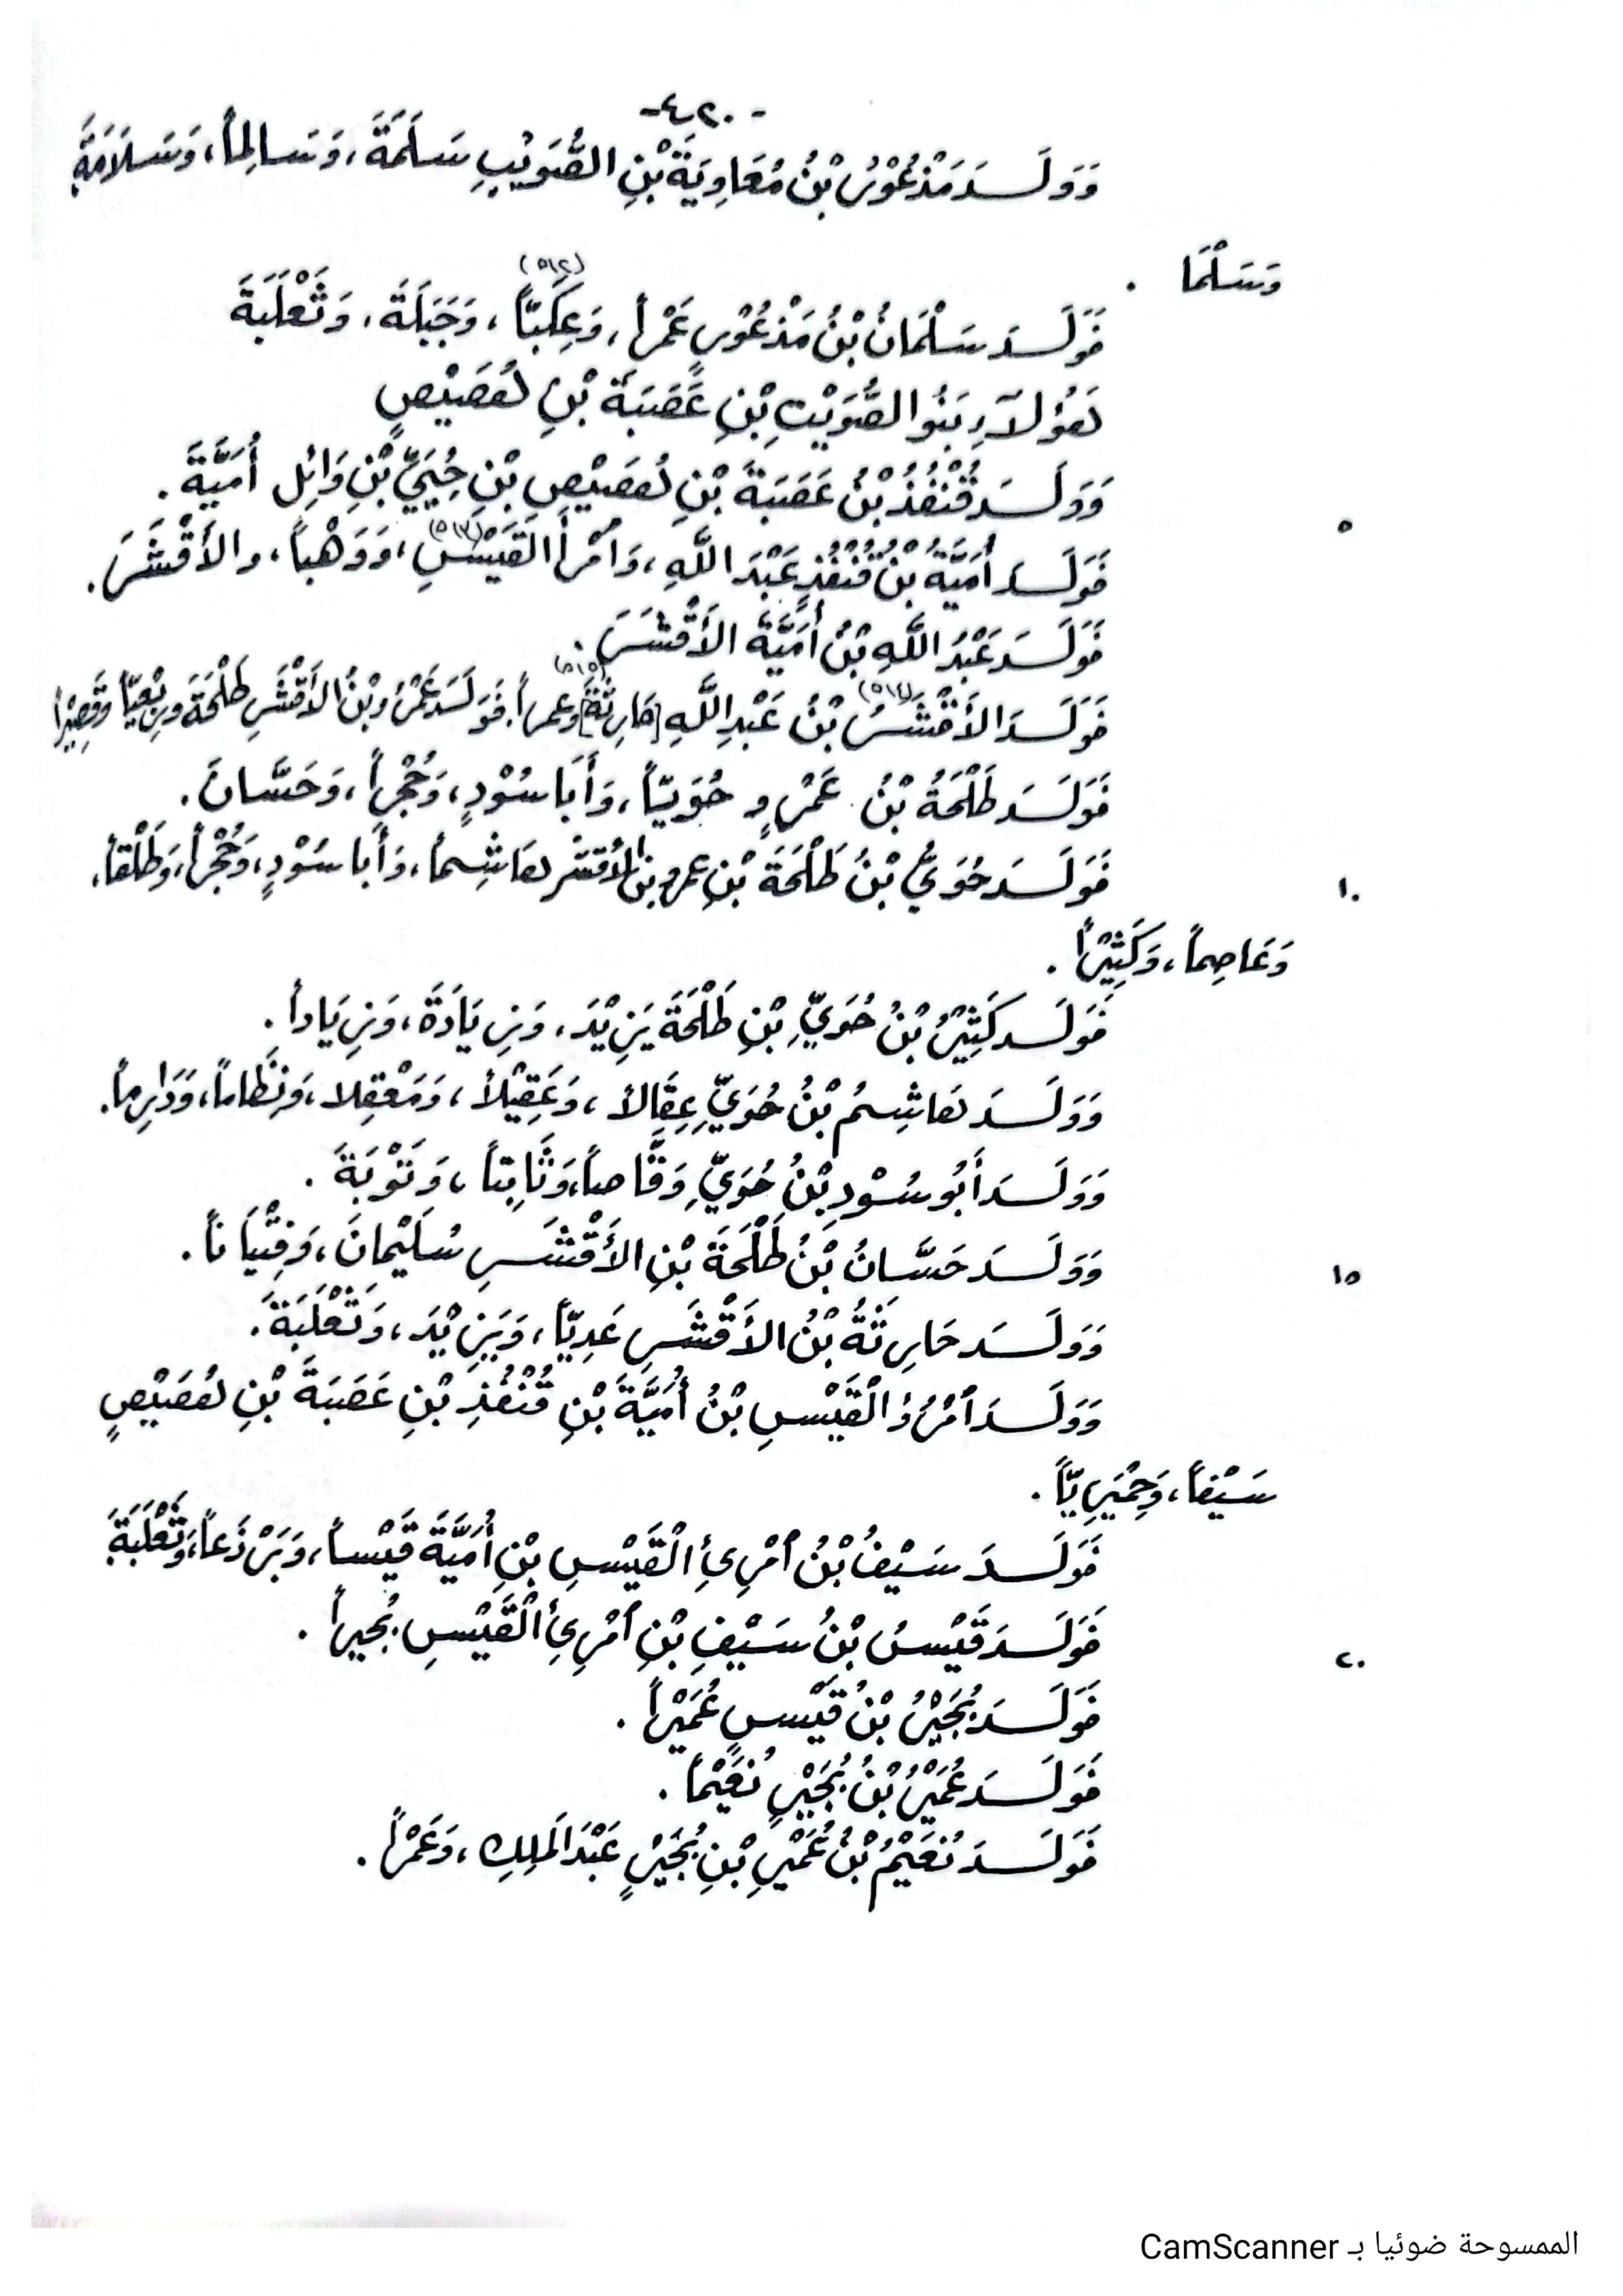 -٤٢٠-
وَوَلَـدَ مَذْعُوْرُ بْنُ مُعَاوِيَةَ بْنِ الصُّوَيْبِ سَلَمَةَ، وَسَالِماً، وَسَلَامَةَ
وَسَلْمَا .
فَوَلَـدَ سَلْمَانُ بْنُ مَذْعُوْرٍ عَمْراً، وَعِكَبّاً (٥١٢)، وَجَبَلَةَ، وَثَعْلَبَةَ
هَؤُلَآءِ بَنُو الصُّوَيْتِ بْنِ عَصَبَةَ بْنِ هُصَيْصٍ
وَوَلَـدَ قُنْفُذُ بْنُ عَصَبَةَ بْنِ هُصَيْصِ بْنِ حُيَيِّ بْنِ وَائِلِ أُمَيَّةَ .
فَوَلَـدَ أُمَيَّةُ بْنُ قُنْفُذٍ عَبْدَ اللَّهِ، وَامْرأَ الْقَيْسِ (٥١٣)، وَوَهْباً، والأَقْشَرَ.
فَوَلَـدَ عَبْدُ اللَّهِ بْنُ أُمَيَّةَ الأَقْشَرَ .
فَوَلَـدَ الأَقْشَرُ (٥١٤) بْنُ عَبْدِ اللَّهِ [حَارِثَةَ] (٥١٥) وعمراً. فَوَلَدَ عَمْرُو بْنُ الأَقْشَرِ طَلْحَةَ وَرِبْعِيّاً وَقَصِيْراً
فَوَلَـدَ طَلْحَةُ بْنُ عَمْرٍو حُوَيّاً، وَأَبَا سُوْدٍ، وَحُجْراً، وَحَسَّانَ.
فَوَلَـدَ حُوَيُّ بْنُ طَلْحَةَ بْنِ عمرو بن الأقشر هَاشِماً، وَأَبا سُوْدٍ، وَحُجْراً، وَطَلْقاً،
وَعَاصِماً، وَكَثِيْراً .
فَوَلَـدَ كَثِيْرُ بْنُ حُوَيِّ بْنِ طَلْحَةَ يَزِيْدَ، وَزِيَادَةَ، وَزِيَاداً .
وَوَلَـدَ هَاشِمُ بْنُ حُوَيِّ عِقَالاً، وَعَقِيْلاً، وَمَعْقِلا، وَنِظَاماً، وَدَارِماً.
وَوَلَـدَ أَبُو سُوْدِ بْنُ حُوَيِّ وَقَّاصاً، وَثَابِتاً، وَتَوْبَةَ .
وَوَلَـدَ حَسَّانُ بْنُ طَلْحَةَ بْنِ الأَقْشَرِ سُلَيْمانَ، وَفِتْيَاناً .
وَوَلَـدَ حَارِثَةُ بْنُ الأَقْشَرِ عَدِيّاً، وَيَزِيْدَ، وَثَعْلَبَةَ.
وَوَلَـدَ امْرُؤُ الْقَيْسِ بْنُ أُمَيَّةَ بْنِ قُنْفُذِ بْنِ عَصَبَةَ بْنِ هُصَيْصٍ
سَيْفاً، وَحِمْيَرِيّاً .
فَوَلَـدَ سَيْفُ بْنُ امْرِئِ الْقَيْسِ بْنِ أُمَيَّةَ قَيْساً، وَبَرْذَعاً، وَثَعْلَبَةَ
فَوَلَـدَ قَيْسُ بْنُ سَيْفِ بْنِ امْرِئِ الْقَيْسِ بُجيراً .
فَوَلَـدَ بُجَيْرُ بْنُ قَيْسٍ عُمَيْراً .
فَوَلَـدَ عُمَيْرُ بْنُ بُجَيْرٍ نُعَيْماً .
فَوَلَـدَ نُعَيْمُ بْنُ عُمَيْرِ بْنِ بُجَيْرٍ عَبْدَ الَملِكِ، وَعَمْراً .
٥
١٠
١٥
٢٠
الممسوحة ضوئيا بـ CamScanner